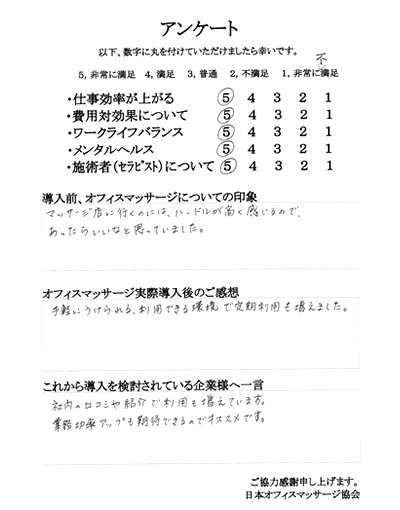 アンケート
以下、数字に丸を付けていただけましたら幸いです。
不
5, 非常に満足 4, 満足 3, 普通 2, 不満足 1, 非常に満足
・仕事効率が上がる 5 4 3 2 1
・費用対効果について 5 4 3 2 1
・ワークライフバランス 5 4 3 2 1
・メンタルヘルス 5 4 3 2 1
・施術者(セラピスト)について 5 4 3 2 1
導入前、オフィスマッサージについての印象
マッサージ店に行くのには、ハードルが高く感じるので、
あったらいいなと思っていました。
オフィスマッサージ実際導入後のご感想
手軽にうけられる、利用できる環境で定期利用も増えました。
これから導入を検討されている企業様へ一言
社内の口コミや紹介で利用も増えています。
業務効率アップも期待できるのでオススメです。
ご協力感謝申し上げます。
日本オフィスマッサージ協会